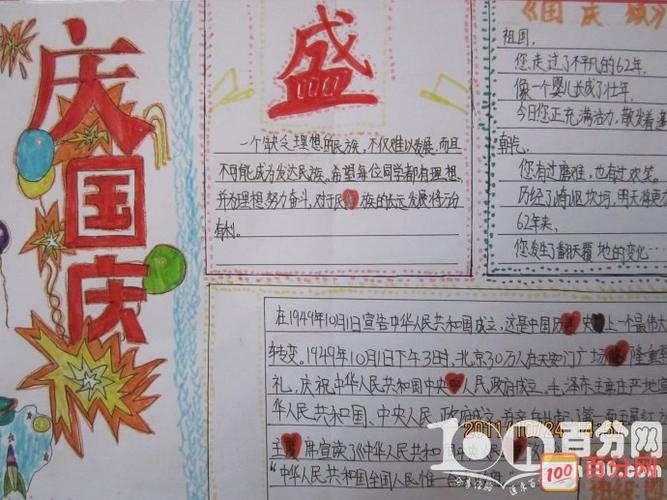 庆国庆
盛
一个缺乏理想的民族，不仅难以发展，而且
不可能成为发达民族。希望每位同学都有理想，
并为理想努力奋斗，对于民族的长远发展将万分
有利。
《国庆颂
祖国，
您走过了不平凡的62年，
像一个婴儿长成了壮年，
今日您正充满活力，散发着
朝气。
您有过磨难，也有过欢笑。
历经了崎岖坎坷，明天将更
62年来，
您发生了翻天覆地的变化……
在1949年10月1日宣告中华人民共和国成立，这是中国历史上一个最伟大
转变。1949年10月1日下午3时，北京30万人在天安门广场隆重
礼，庆祝中华人民共和国中央人民政府成立。毛泽东主席庄严地
华人民共和国、中央人民政府成立，并亲
主席宣读了《中华人民共和国
"中华人民共和国全国人民唯一
2011/10/24
100百分网
100
百分网